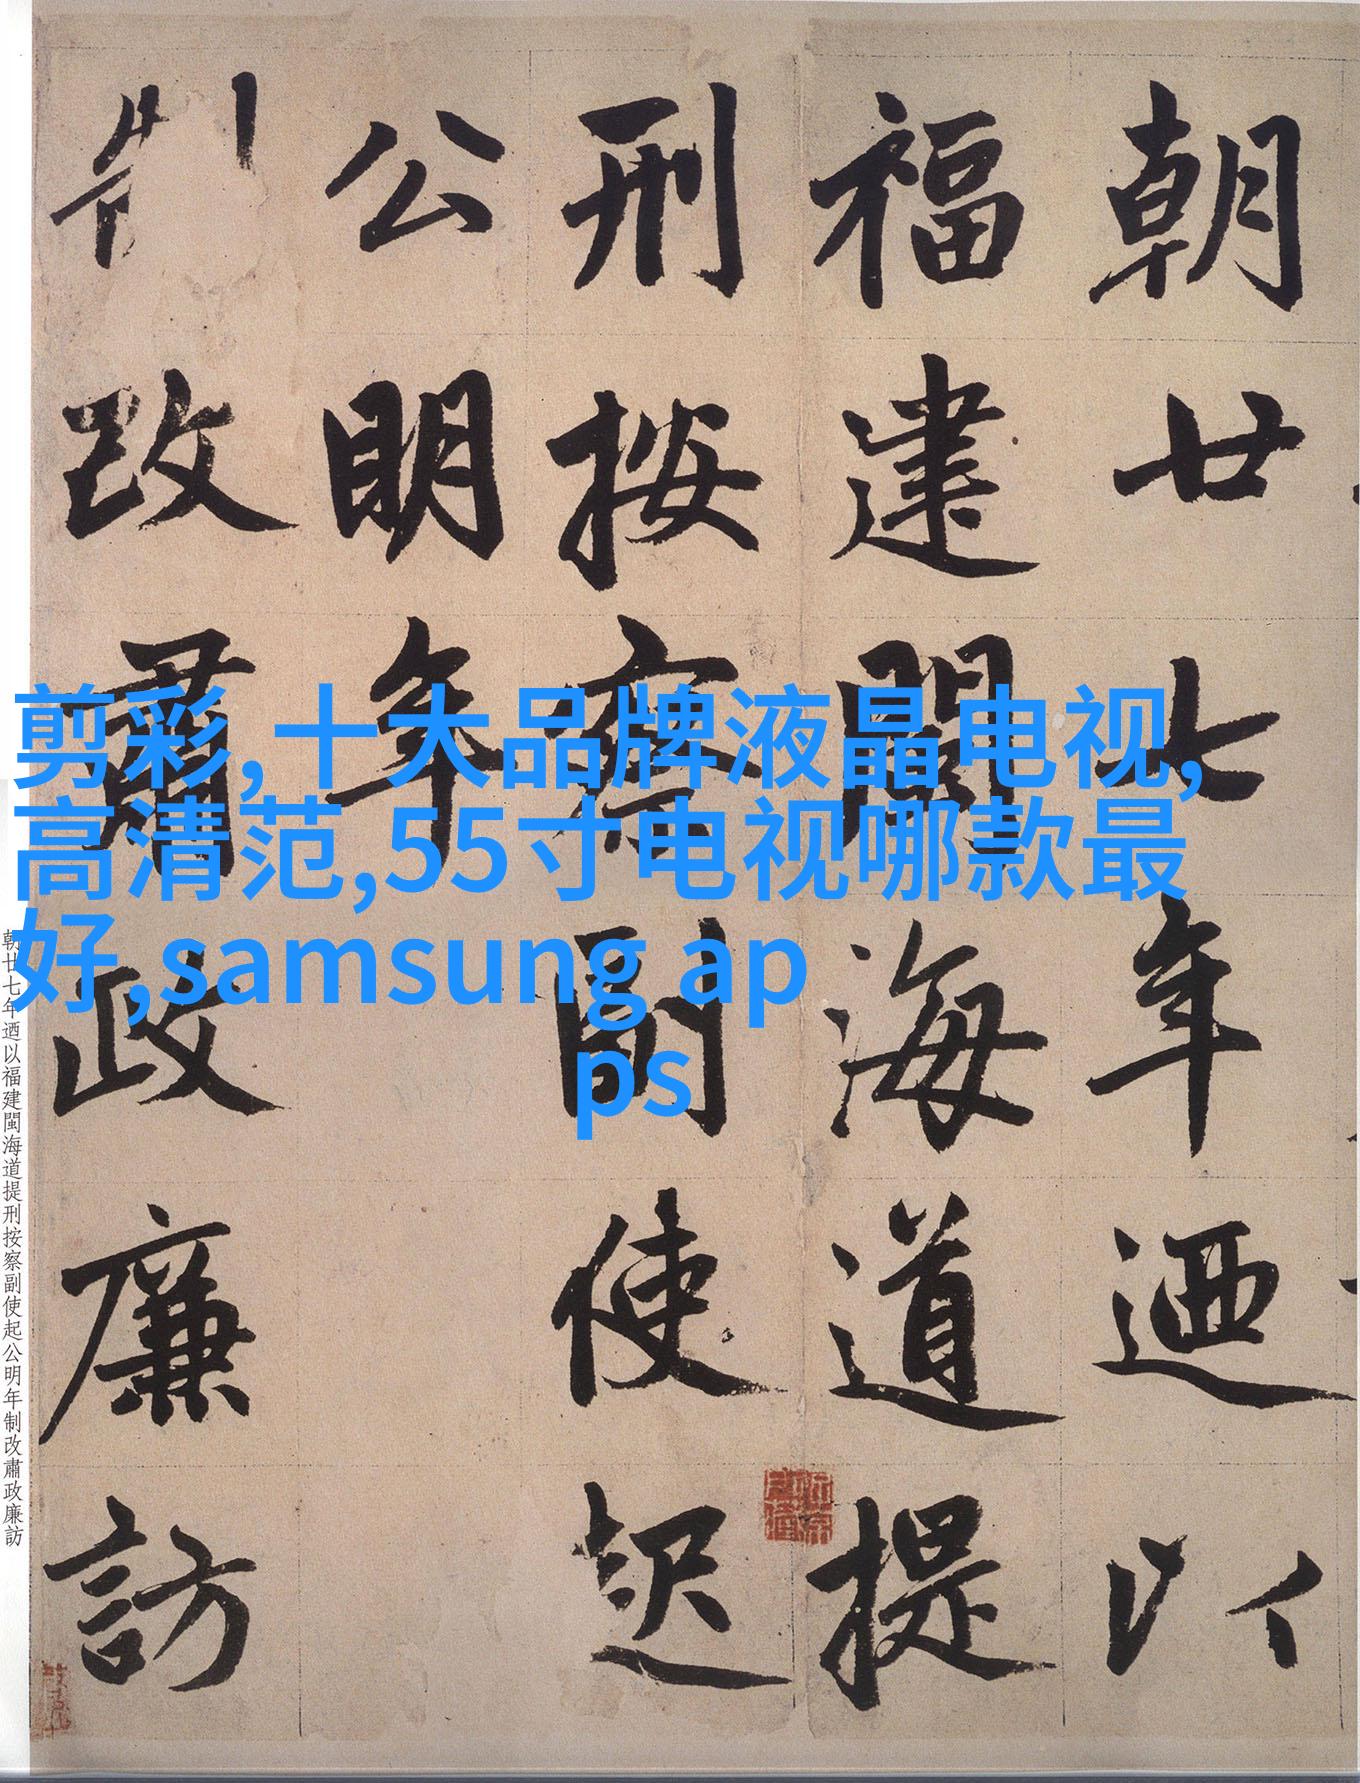 朝廿七年迺以
福建閩海道提
刑按察副使起
公明年
制改肅政廉訪
剪彩,十大品牌液晶电视,
高清范,55寸电视哪款最
好,samsung ap
ps
朝廿七年迺以福建閩海道提刑按察副使起公明年制改肅政廉訪